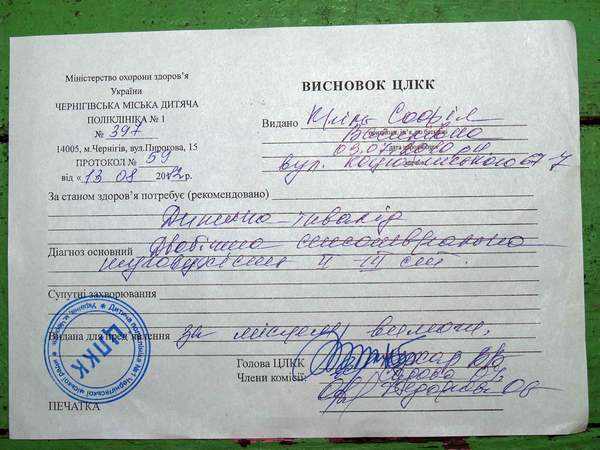 Міністерство охорони здоров'я
України
ЧЕРНІГІВСЬКА МІСЬКА ДИТЯЧА
ПОЛІКЛІНІКА № 1
№ 397
14005, м.Чернігів, вул.Пирогова, 15
ПРОТОКОЛ № 59
від « 13 08 2012р.
ВИСНОВОК ЦЛКК
Видано Кринь Софія
03.07
вул. Коцюбинського
За станом здоров'я потребує (рекомендовано)
Дитина-інвалід
Діагноз основний Двобічна сенсоневральна
туговухість II-III ст.
Супутні захворювання
Видана для пред'явлення за місцем вимоги.
Голова ЦЛКК
Члени комісії:
ПЕЧАТКА
ЦЛКК